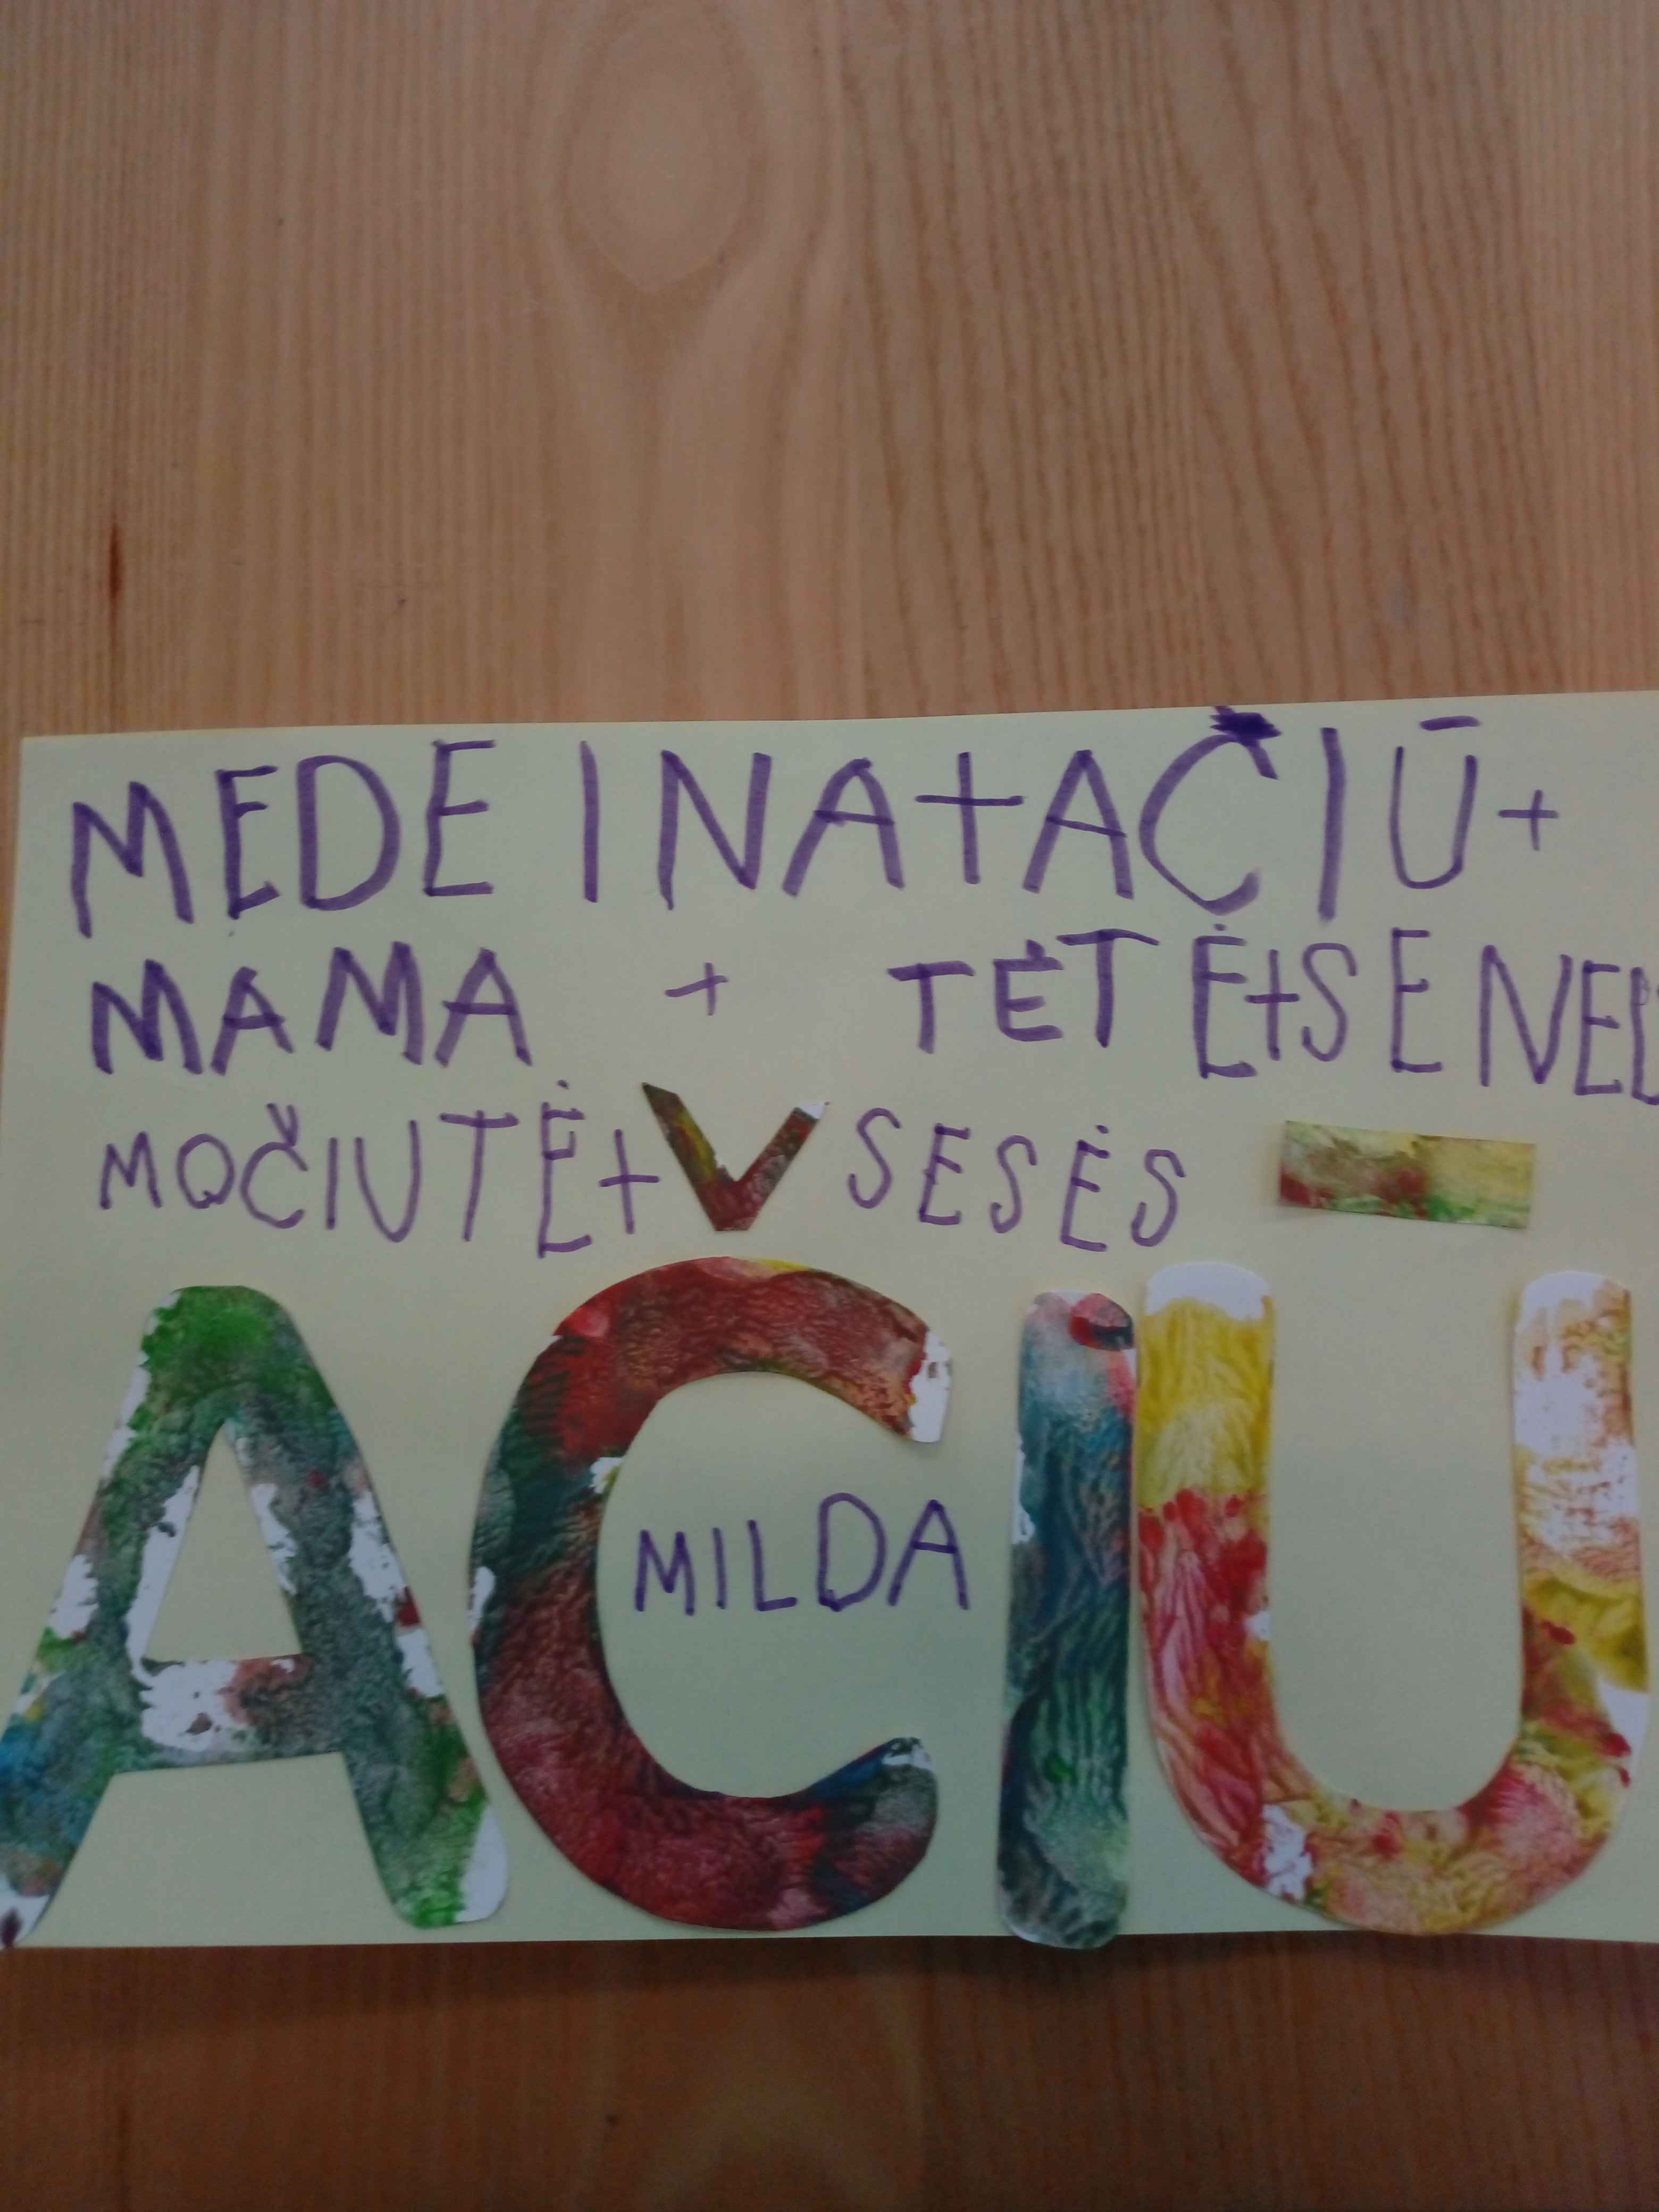 MEDEINA+AČIŪ+
MAMA + TĖTĖ+SENEL
MOČIUTĖ+ SESĖS
AČIŪ
MILDA